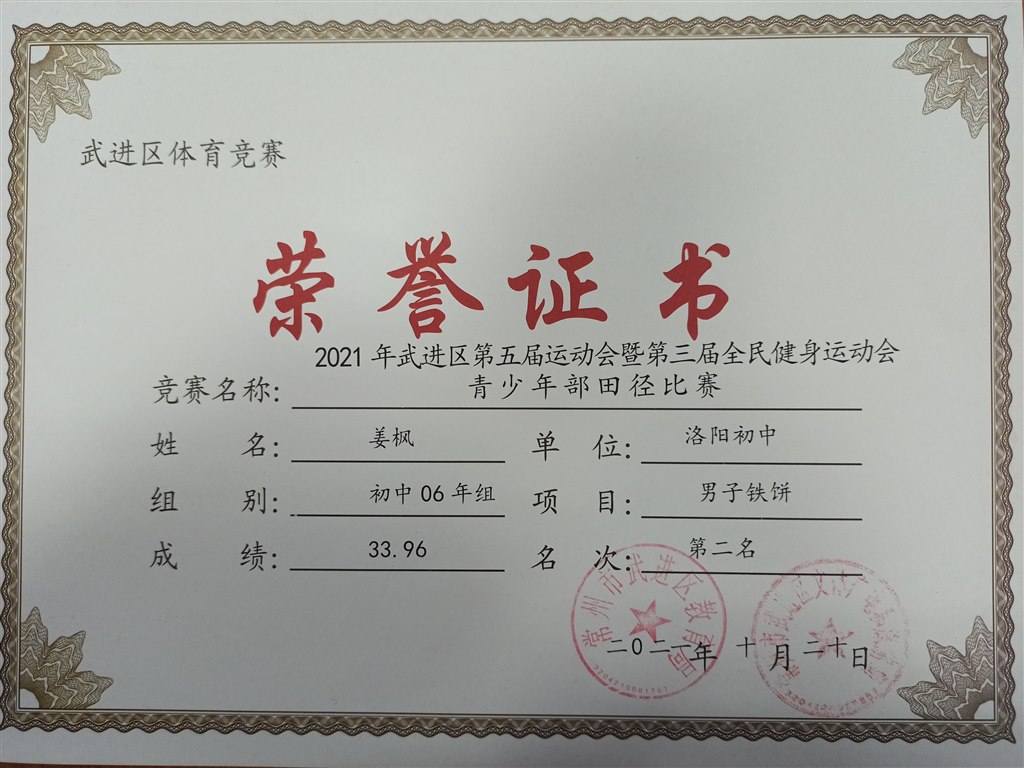 武进区体育竞赛
荣誉证书
2021年武进区第五届运动会暨第三届全民健身运动会
竞赛名称: 青少年部田径比赛
姓名: 姜枫 单位: 洛阳初中
组别: 初中06年组 项目: 男子铁饼
成绩: 33.96 名次: 第二名
常州市武进区教育局
二0二一年十月二十日